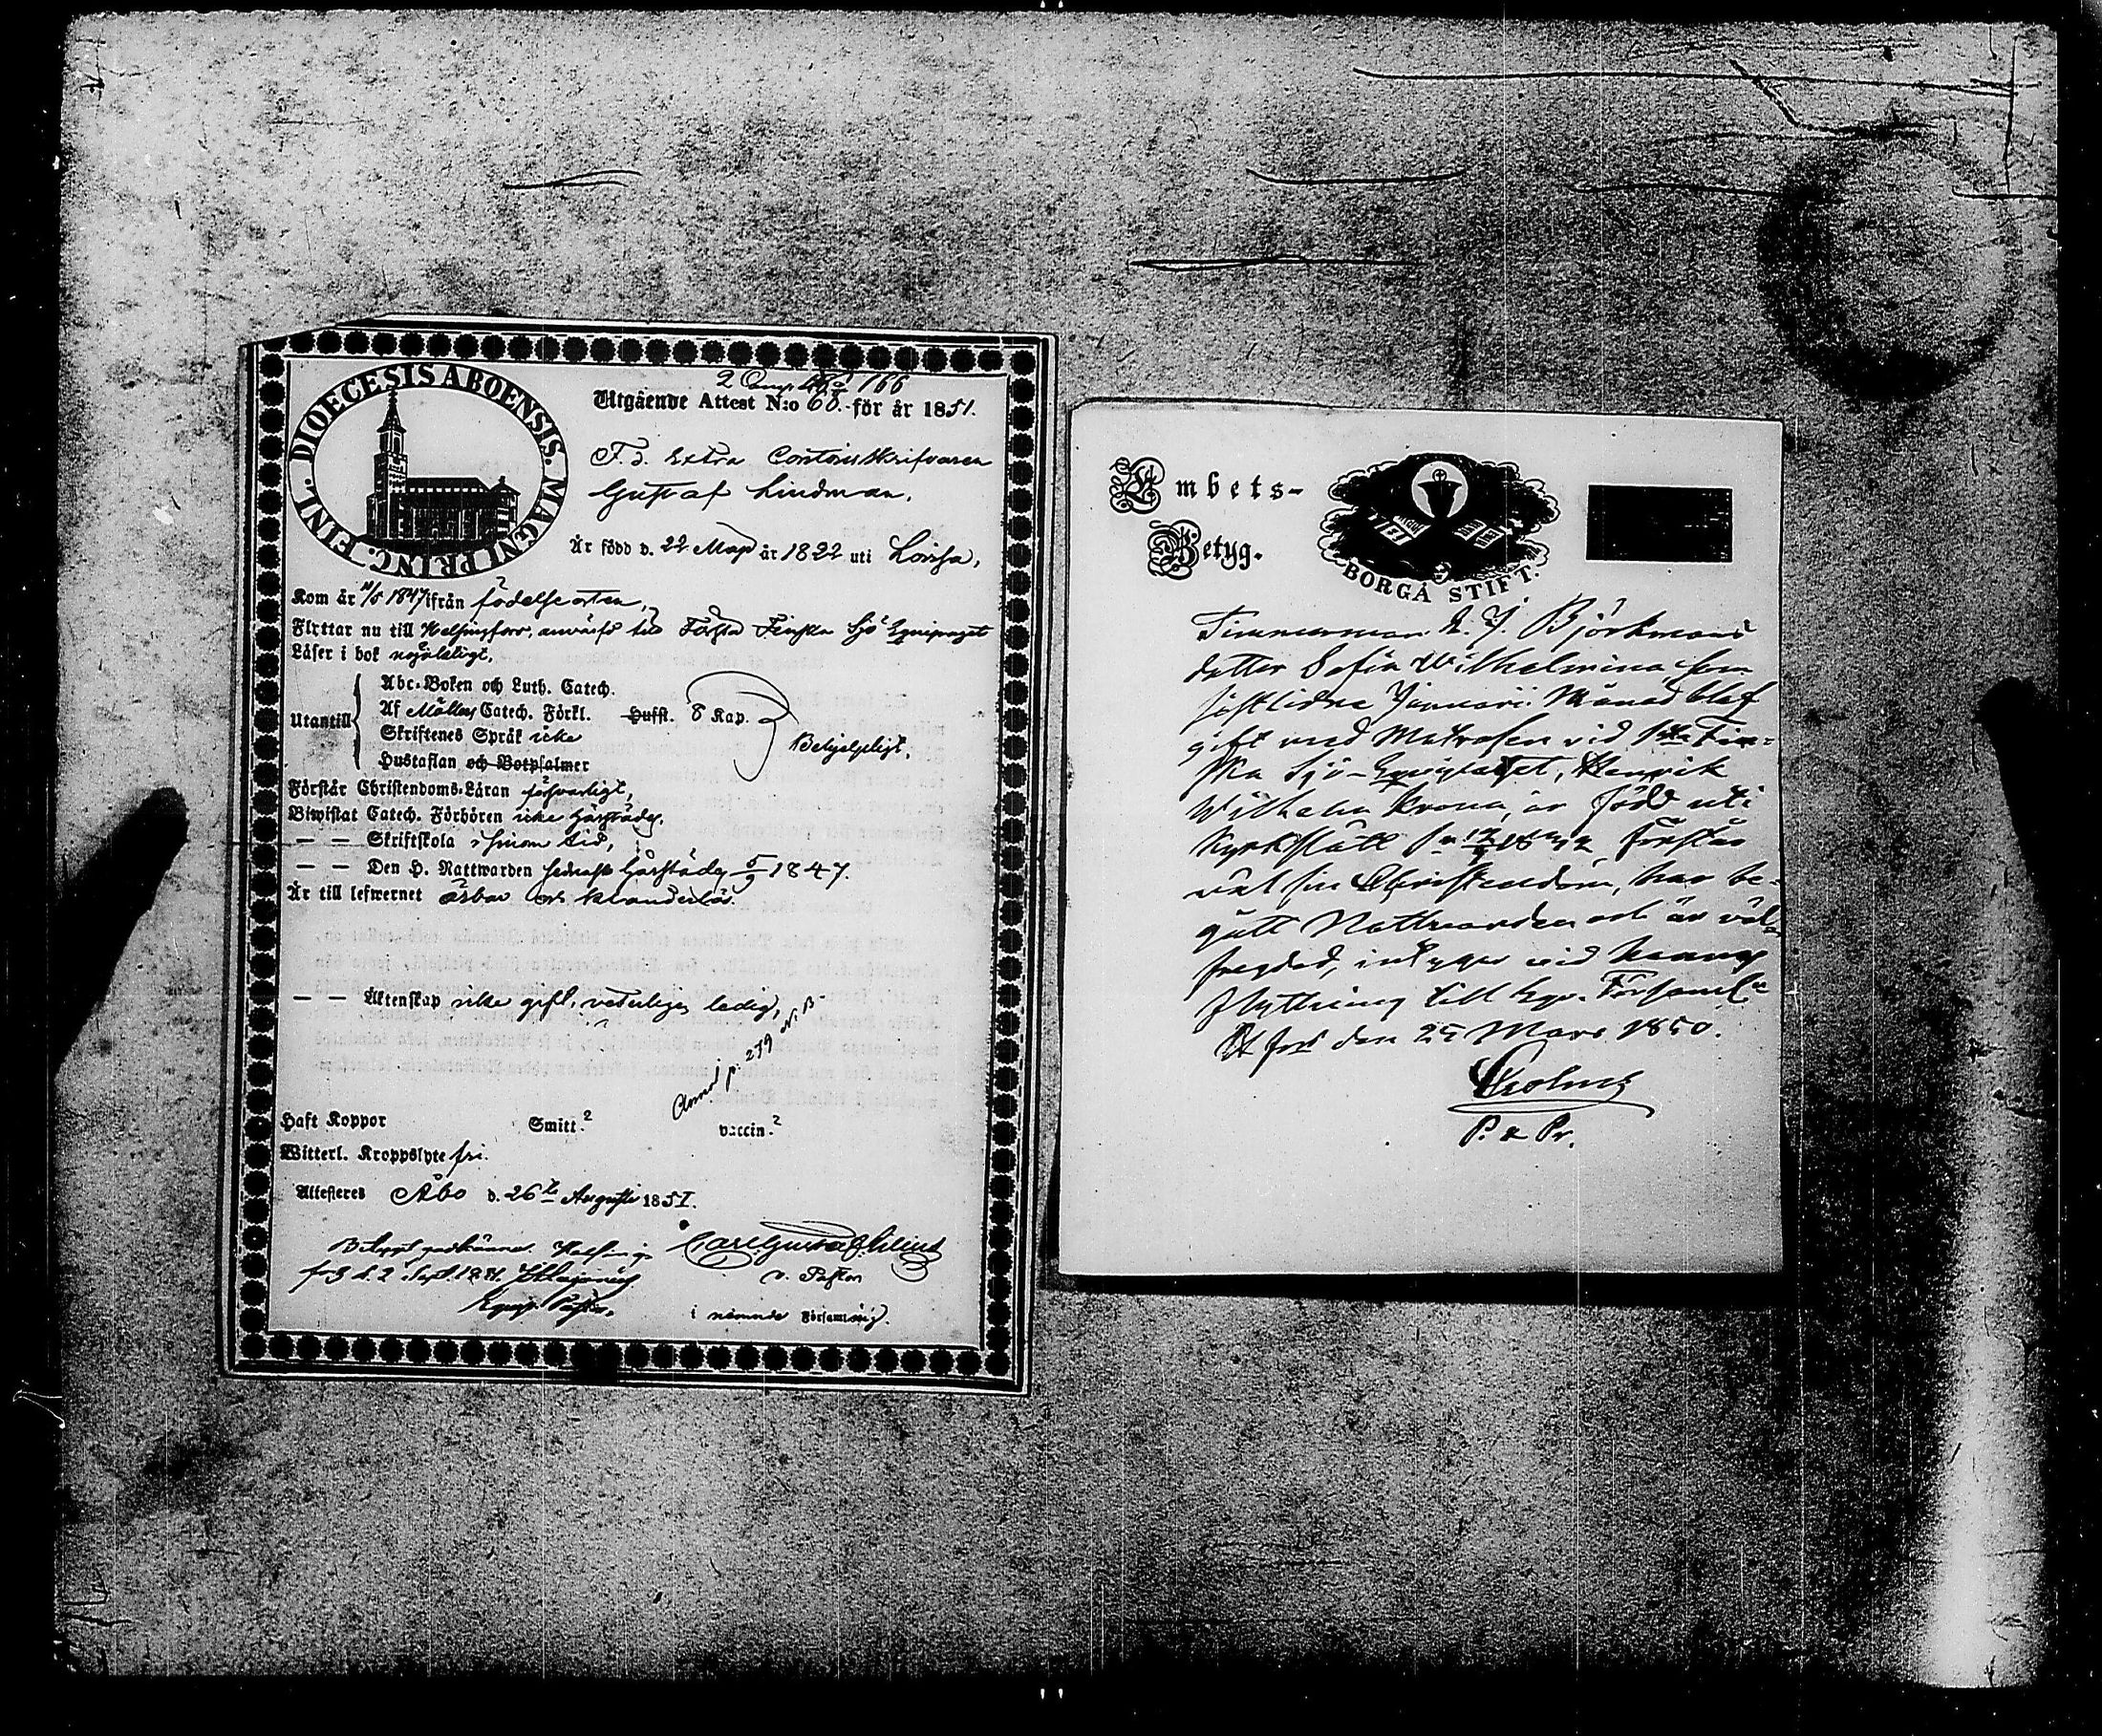 DIOECESIS ABOENSIS. MAGNI PRINC. FINL.
2 Comp. 166
Utgående Attest N:o 68. för år 1851.
F. d. Extra Contorsskrifvaren
Gustaf Lindman,
Är född d. 22 Maji år 1822 uti Lovisa,
Kom år 1847 ifrån födelseorten,
Flyttar nu till Helsingfors, använd till Första Finska Sjö Equipaget
Läser i bok nöjaktigt,
Utantill
Abc-Boken och Luth. Catech.
Af Möllers Catech. Förkl. Husst. 8 Kap.
Skriftenes Språk icke
Hustaflan och Botpsalmer
Behjelpligt,
Förstår Christendoms-Läran försvarligt,
Biwistat Catech. Förhören icke härstädes,
— — Skriftskola i sinom tid,
— — Den H. Nattwarden sednast härstädes 1847.
Är till lefwernet ärbar och klanderlös.
— — Äktenskap icke gift, veterligen ledig,
Ann. p. 279 N. B
Haft Koppor Smitt. ? vaccin. ?
Witterl. Kroppslyte fri.
Attesteres Åbo d. 26 Augusti 1851.
Betyget godkännes. Helsing-
fors d. 2 Sept. 1851.
Equip. Pastor.
Carl Gustaf
v. Pastor
i nämnde Församling.
Embets-
Betyg.
BORGÅ STIFT.
Timmerman Björkmans
dotter Sofia Wilhelmina, som
sistlidne Januari Månad blef
gift med Matrosen vid 1sta Fin-
ska Sjö-Equipaget, Henrik
Wilhelm Krona, är född uti
Kyrkslätt förstår
väl sin Christendom, har be-
gått Nattvarden och är väl
fregdad, intygas vid hennes
flyttning till Eqv. Församl.
H:fors den 25 Mars 1850.
P. & Pr.